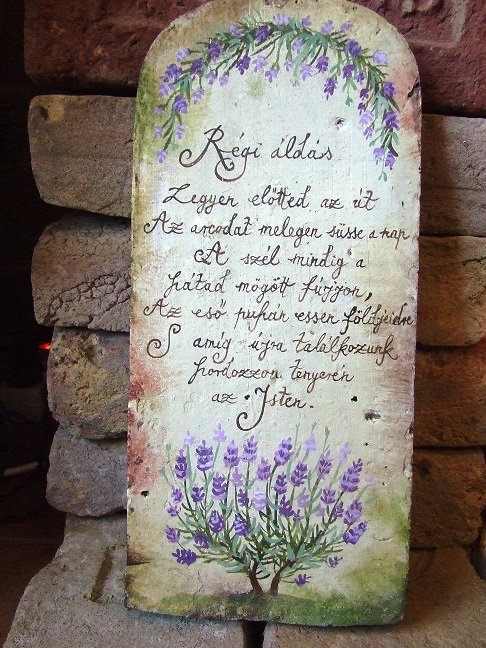 Régi áldás
Legyen előtted az út
Az arcodat melegen süsse a nap
A szél mindig a
hátad mögött fújjon,
Az eső puhán essen földjeidre
S amíg újra találkozunk
hordozzon tenyerén
az Isten.